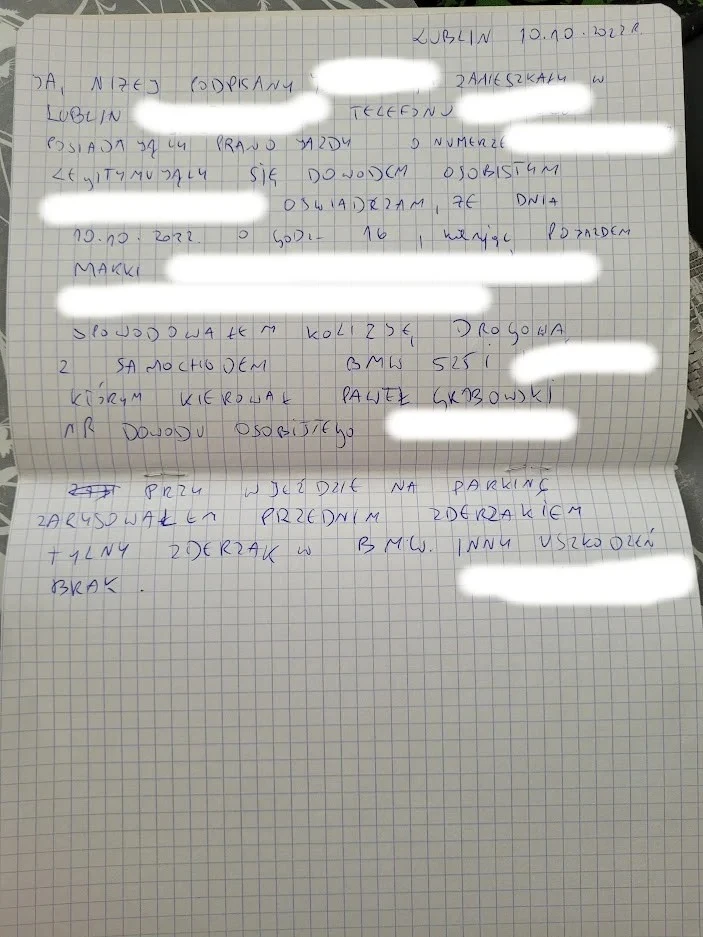 LUBLIN 10.10.2022R.
JA, NIŻEJ PODPISANY ZAMIESZKAŁY W
LUBLIN TELEFONU
POSIADAJĄCY PRAWO JAZDY O NUMERZE
LEGITYMUJĄCY SIĘ DOWODEM OSOBISTYM
OŚWIADCZAM, ŻE DNIA
10.10.2022. O GODZ. 16, kierując POJAZDEM
MARKI
SPOWODOWAŁEM KOLIZJĘ DROGOWĄ
Z SAMOCHODEM BMW 525i
KTÓRYM KIEROWAŁ PAWEŁ GRABOWSKI
NR DOWODU OSOBISTEGO
PRZY WJEŹDZIE NA PARKING
ZARYSOWAŁEM PRZEDNIM ZDERZAKIEM
TYLNY ZDERZAK W BMW. INNY USZKODZEŃ
BRAK.